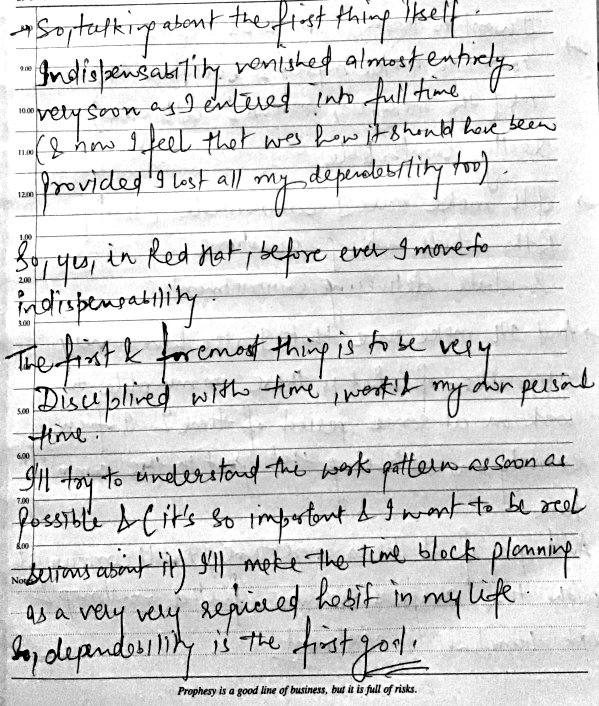 → So, talking about the first thing itself.
9.00 Indispensability vanished almost entirely
10.00 very soon as I entered into full time
11.00 (& now I feel that was how it should have been
12.00 provided I lost all my dependability too).
1.00
So, yes, in Red Hat, before ever I move to
2.00
indispensability.
3.00
The first & foremost thing is to be very
Disciplined with time, work & my own personal
5.00
time.
6.00
I'll try to understand the work pattern as soon as
7.00
possible & (it's so important & I want to be real
8.00
serious about it) I'll make the time block planning
as a very very required habit in my life.
So, dependability is the first goal.
Prophesy is a good line of business, but it is full of risks.